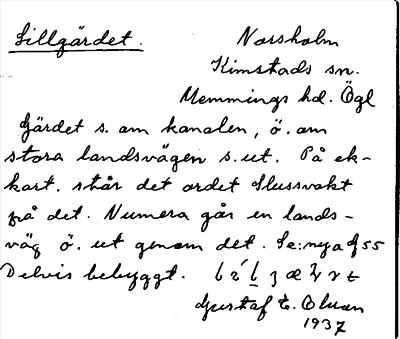 Lillgärdet.
Norsholm
Kimstads sn.
Memmings hd. Ögl
Gärdet s. om kanalen, ö. om
stora landsvägen s. ut. På ek-
kart. står det ordet Slussvakt
på det. Numera går en lands-
väg ö. ut genom det. Se: nya
Delvis bebyggt.
Gustaf E.
1937